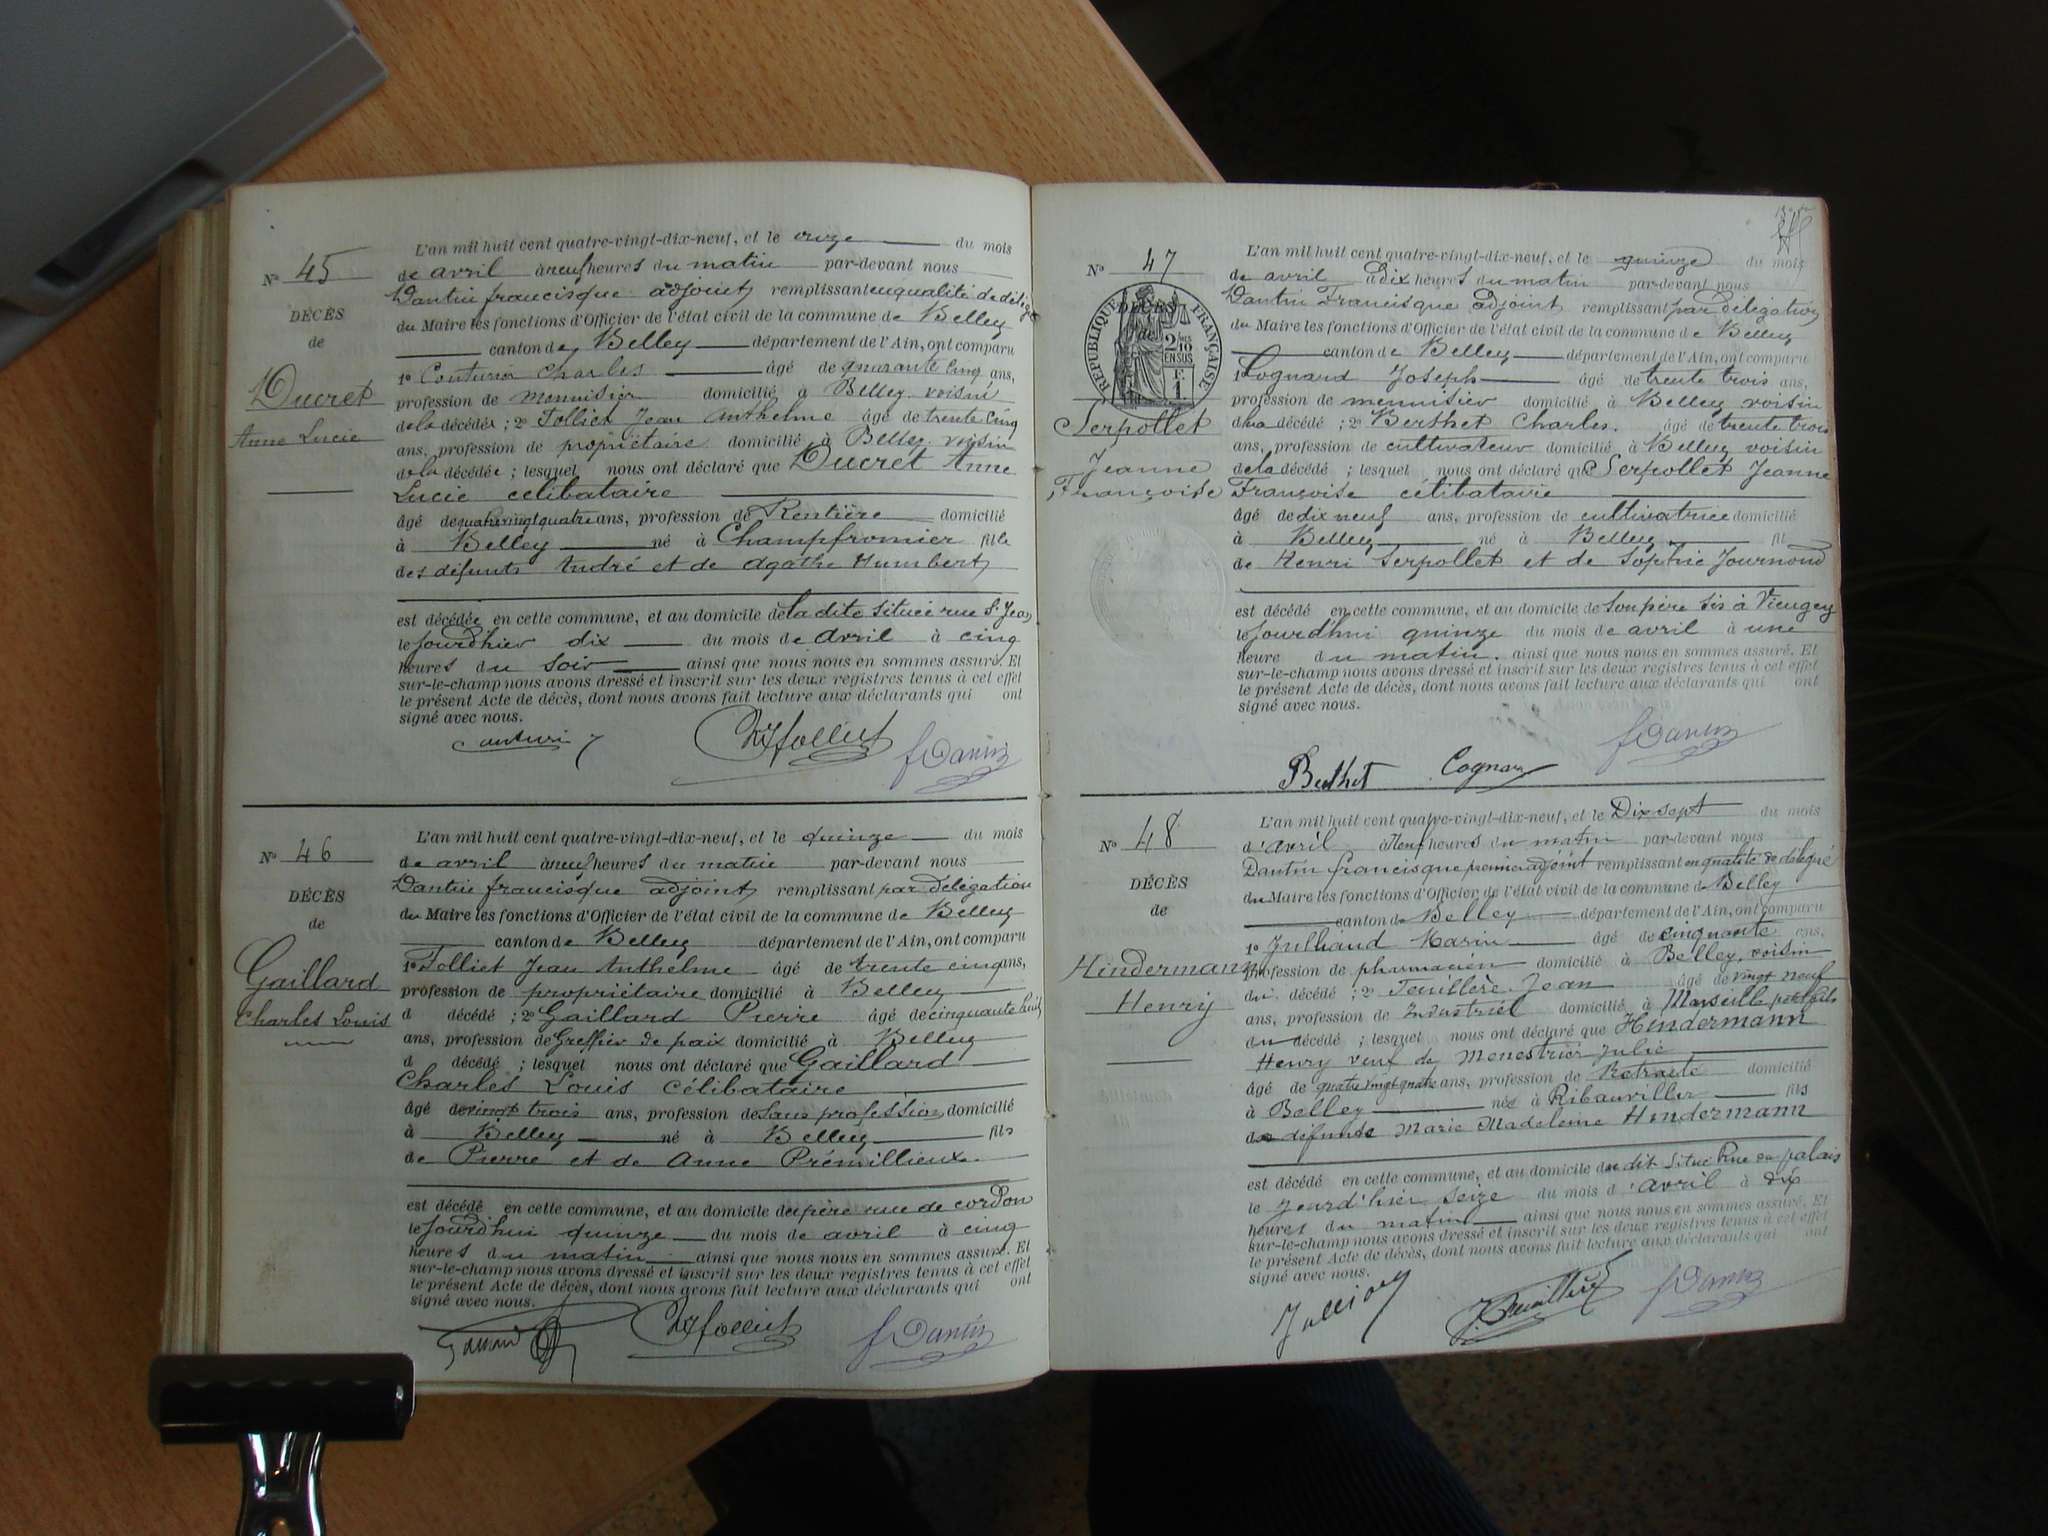 N° 45
DÉCÈS
de
Ducret
Anne Lucie
L'an mil huit cent quatre-vingt-dix-neuf, et le onze du mois
de avril à neuf heures du matin par-devant nous
Dantin francisque adjoint remplissant en qualité de délégué
du Maire les fonctions d'Officier de l'état civil de la commune de Belley
canton de Belley département de l'Ain, ont comparu
1° Couturier Charles âgé de quarante cinq ans,
profession de menuisier domicilié à Belley voisin
de la décédée ; 2° Folliet Jean Anthelme âgé de trente cinq
ans, profession de propriétaire domicilié à Belley voisin
de la décédée ; lesquel nous ont déclaré que Ducret Anne
Lucie célibataire
âgé de quatre vingt quatre ans, profession de Rentière domicilié
à Belley né à Champfromier fille
des défunts André et de Agathe Humbert
est décédée en cette commune, et au domicile de la dite située rue St Jean
le jourd'hier dix du mois de avril à cinq
heures du soir ainsi que nous nous en sommes assuré. Et
sur-le-champ nous avons dressé et inscrit sur les deux registres tenus à cet effet
le présent Acte de décès, dont nous avons fait lecture aux déclarants qui ont
signé avec nous.
Folliet
f Dantin
N° 46
DÉCÈS
de
Gaillard
Charles Louis
L'an mil huit cent quatre-vingt-dix-neuf, et le quinze du mois
de avril à neuf heures du matin par-devant nous
Dantin francisque adjoint remplissant par délégation
du Maire les fonctions d'Officier de l'état civil de la commune de Belley
canton de Belley département de l'Ain, ont comparu
1° Folliet Jean Anthelme âgé de trente cinq ans,
profession de propriétaire domicilié à Belley
d décédé ; 2° Gaillard Pierre âgé de cinquante huit
ans, profession de Greffier de paix domicilié à Belley
d décédé ; lesquel nous ont déclaré que Gaillard
Charles Louis célibataire
âgé de vingt trois ans, profession de sans profession domicilié
à Belley né à Belley fils
de Pierre et de Anne Prémillieux
est décédé en cette commune, et au domicile de père rue de cordon
le jourd'hui quinze du mois de avril à cinq
heures du matin ainsi que nous nous en sommes assuré. Et
sur-le-champ nous avons dressé et inscrit sur les deux registres tenus à cet effet
le présent Acte de décès, dont nous avons fait lecture aux déclarants qui ont
signé avec nous.
Folliet
f Dantin
N° 47
DÉCÈS
RÉPUBLIQUE FRANÇAISE
2/10 EN SUS
F. 1
Serpollet
Jeanne
Françoise
L'an mil huit cent quatre-vingt-dix-neuf, et le quinze du mois
de avril à dix heures du matin par-devant nous
Dantin Francisque adjoint remplissant par délégation
du Maire les fonctions d'Officier de l'état civil de la commune de Belley
canton de Belley département de l'Ain, ont comparu
1° Cognard Joseph âgé de trente trois ans,
profession de menuisier domicilié à Belley voisin
de la décédé ; 2° Berthet Charles. âgé de trente trois
ans, profession de cultivateur domicilié à Belley voisin
de la décédé ; lesquel nous ont déclaré que Serpollet Jeanne
Françoise célibataire
âgé de dix neuf ans, profession de cultivatrice domicilié
à Belley né à Belley fil
de Henri Serpollet et de Sophie Journond
est décédé en cette commune, et au domicile de son père sis à Vieugey
le jourd'hui quinze du mois de avril à une
heure du matin. ainsi que nous nous en sommes assuré. Et
sur-le-champ nous avons dressé et inscrit sur les deux registres tenus à cet effet
le présent Acte de décès, dont nous avons fait lecture aux déclarants qui ont
signé avec nous.
f Dantin
Berthet Cognard
N° 48
DÉCÈS
de
Hindermann
Henry
L'an mil huit cent quatre-vingt-dix-neuf, et le Dix sept du mois
d'avril à neuf heures du matin par-devant nous
Dantin francisque premier adjoint remplissant en qualité de délégué
du Maire les fonctions d'Officier de l'état civil de la commune de Belley
canton de Belley département de l'Ain, ont comparu
1° Julliand Marin âgé de cinquante ans,
profession de pharmacien domicilié à Belley, voisin
du décédé ; 2° Feuillère Jean âgé de vingt neuf
ans, profession de industriel domicilié à Marseille petit fils
du décédé ; lesquel nous ont déclaré que Hindermann
Henry veuf de Menestrier Julie
âgé de quatre vingt quatre ans, profession de Retraité domicilié
à Belley né à Ribauviller fils
de défunte Marie Madeleine Hindermann
est décédé en cette commune, et au domicile du dit situé Rue du palais
le jourd'hier seize du mois d'avril à dix
heures du matin ainsi que nous nous en sommes assuré. Et
sur-le-champ nous avons dressé et inscrit sur les deux registres tenus à cet effet
le présent Acte de décès, dont nous avons fait lecture aux déclarants qui ont
signé avec nous.
f Dantin